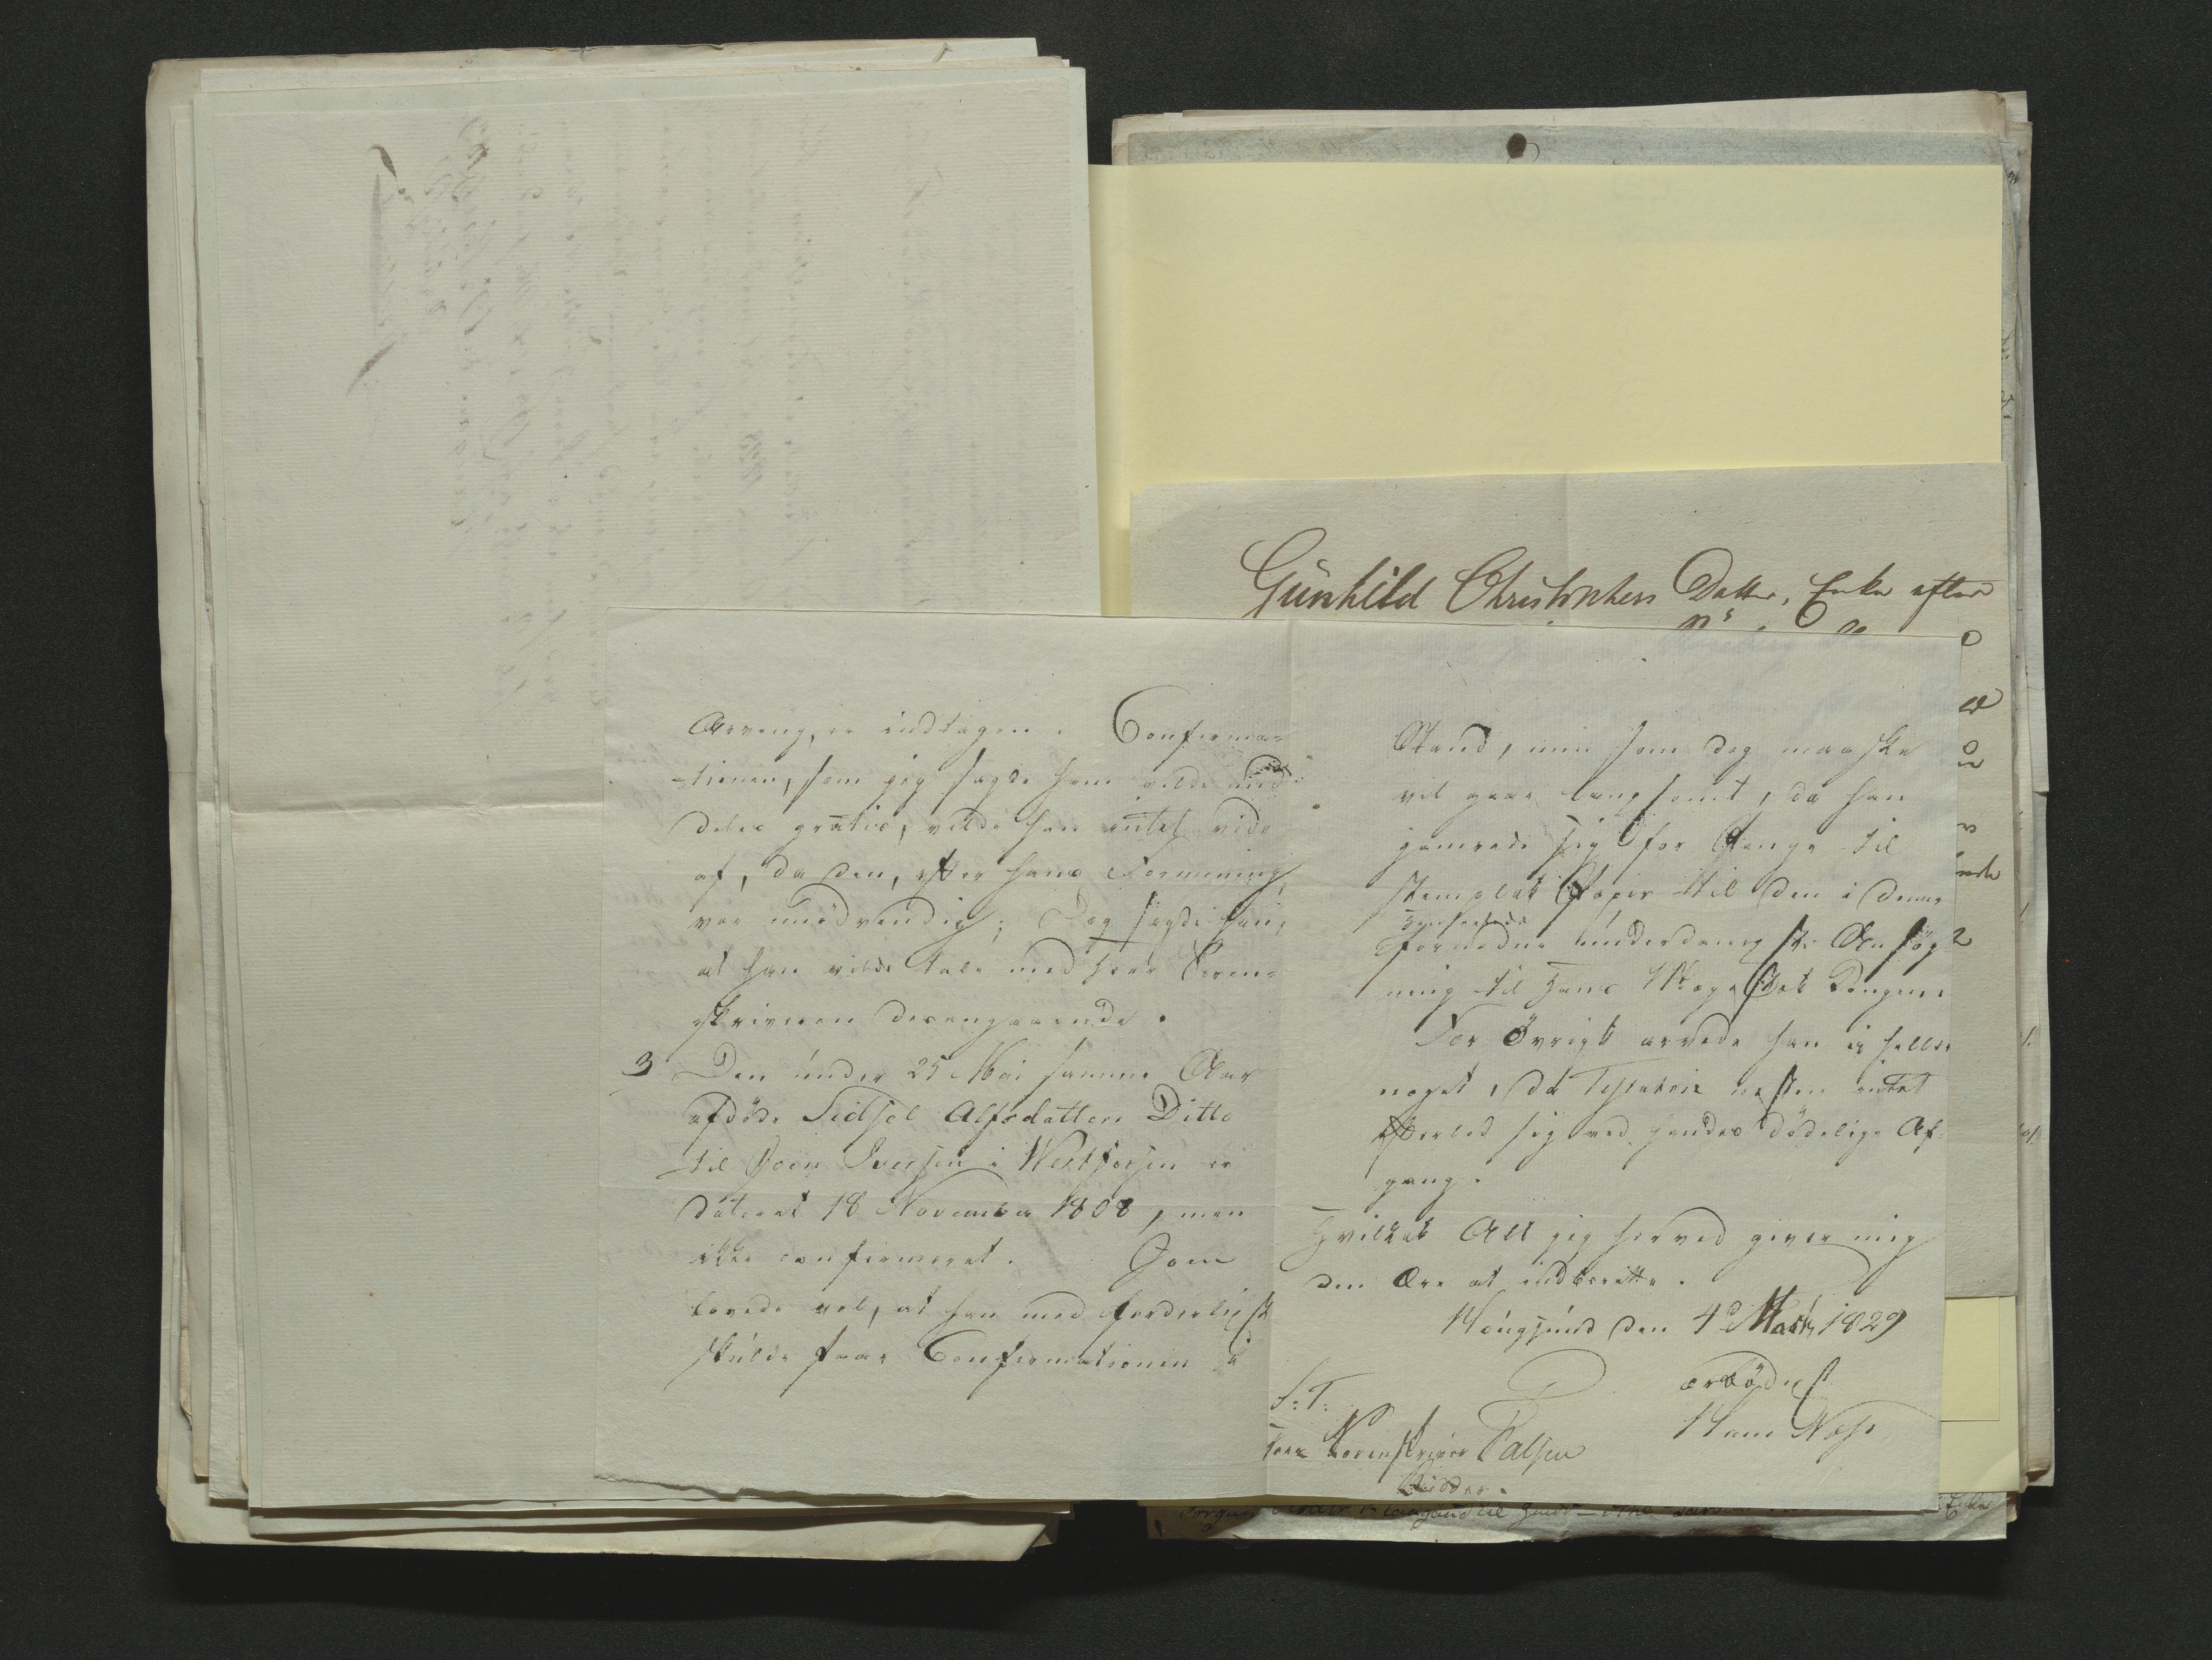 Gunhild Christophers Datter, Enke efter
Arving, er indtagen. Confirma-
-tionen, som jeg sagde ham vilde med-
deles gratis, vilde han intet vide
af, da den, efter hans Formening,
var unödvendig; Dog sagde han,
at han vilde tale med Herr Soren-
skriveren desangaaende.
3 Den under 25 Mai samme Aar
afdöde Sidsel Alfsdatters Ditto
til Joen Iversen i Westfossen er
dateret 18 November 1808, men
ikke confirmeret. Joen
lovede vel, at han med forderligst
skulde faae Confirmationen i
Stand, men som dog maaske
vel gaae langsomt, da han
jamrede sig for Penge til
stemplet Papir til den i denne
Henseende
fornödne underdanigste Ansög-
ning til Hans Majestæt Kongen.
For Övrigt arvede han ej heller
noget, da Testatrix næsten intet
efterlod sig ved hendes dödelige Af-
gang.
Hvilket Alt jeg herved giver mig
den Ære at indberette.
Hougsund den 4d Marts 1829
ærbödigst
S: T:
Herr Sorenskriver Palsen
Ridder.